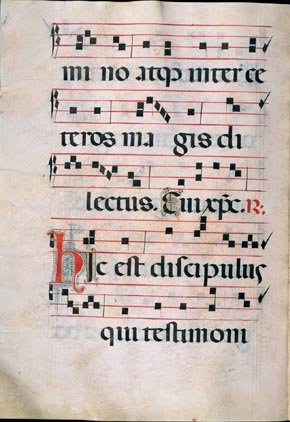 mi no atqꝫ inter ce
teros ma gis di
lectus. Cui xp̄c. R.
hic est discipulus
qui testimoni